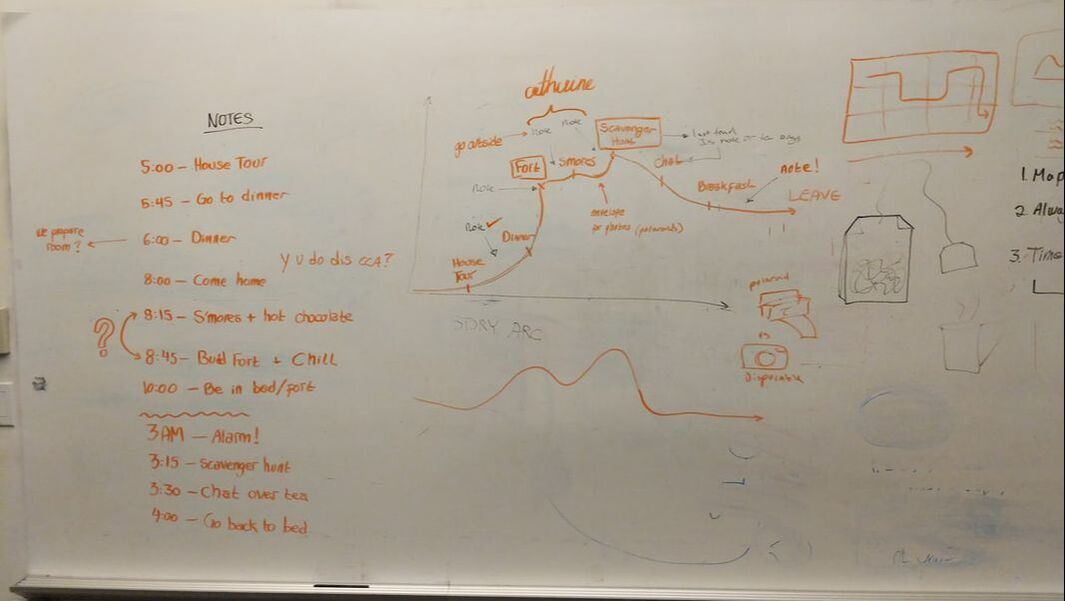 NOTES
5:00 – House Tour
5:45 – Go to dinner
6:00 – Dinner
we prepare
room?
y u do dis CCA?
8:00 – Come home
8:15 – S'mores + hot chocolate
?
8:45 – Build Fort + Chill
10:00 – Be in bed/fort
3AM – Alarm!
3:15 – Scavenger hunt
3:30 – Chat over tea
4:00 – Go back to bed
catherine
go outside
Note
Note
Scavenger
Hunt
last found
is note
Fort
S'mores
Chat
Note
Breakfast
note!
LEAVE
envelope
for photos (polaroids)
Note
Dinner
House
Tour
STORY ARC
polaroid
vs
Disposable
1. Map
2. Alway
3. Time